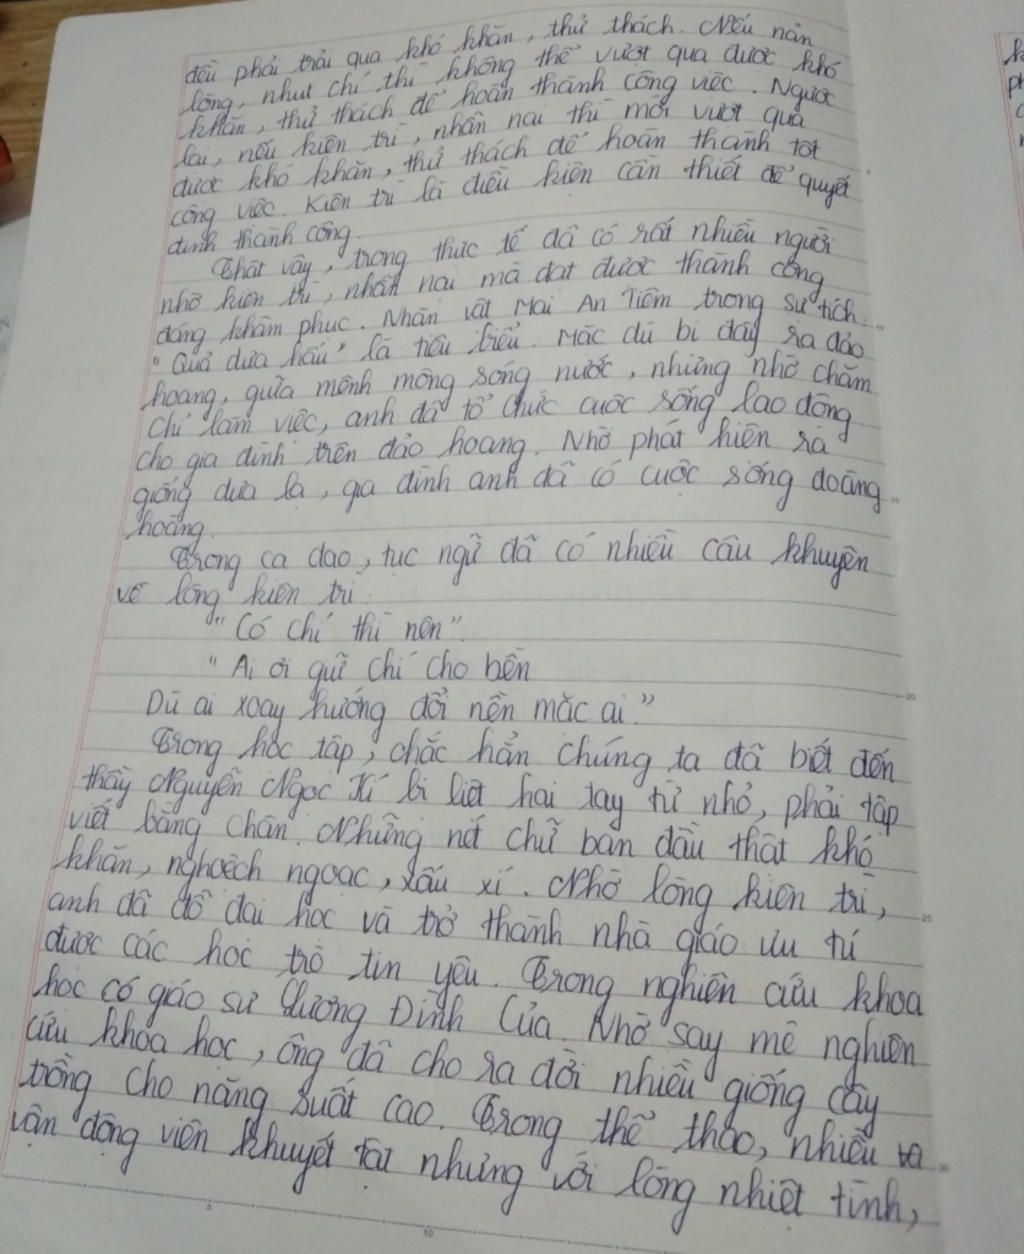 đều phải trải qua khó khăn, thử thách. Nếu nản
lòng, nhụt chí thì không thể vượt qua được khó
khăn, thử thách để hoàn thành công việc. Ngược
lại, nếu kiên trì, nhẫn nại thì mới vượt qua
được khó khăn, thử thách để hoàn thành tốt
công việc. Kiên trì là điều kiện cần thiết để quyết
định thành công.
Thật vậy, trong thực tế đã có rất nhiều người
nhờ kiên trì, nhẫn nại mà đạt được thành công
đáng khâm phục. Nhân vật Mai An Tiêm trong sự tích
"Quả dưa hấu" là tiêu biểu. Mặc dù bị đày ra đảo
hoang, giữa mênh mông sóng nước, nhưng nhờ chăm
chỉ làm việc, anh đã tổ chức cuộc sống lao động
cho gia đình trên đảo hoang. Nhờ phát hiện ra
giống dưa lạ, gia đình anh đã có cuộc sống đoàng
hoàng.
Trong ca dao, tục ngữ đã có nhiều câu khuyên
về lòng kiên trì:
"Có chí thì nên".
"Ai ơi giữ chí cho bền
Dù ai xoay hướng đổi nền mặc ai."
Trong học tập, chắc hẳn chúng ta đã biết đến
thầy Nguyễn Ngọc Kí bị liệt hai tay từ nhỏ, phải tập
viết bằng chân. Những nét chữ ban đầu thật khó
khăn, nghoệch ngoạc, xấu xí. Nhờ lòng kiên trì,
anh đã đỗ đại học và trở thành nhà giáo ưu tú
được các học trò tin yêu. Trong nghiên cứu khoa
học có giáo sư Lương Đình Của. Nhờ say mê nghiên
cứu khoa học, ông đã cho ra đời nhiều giống cây
trồng cho năng suất cao. Trong thể thao, nhiều
vận động viên khuyết tật nhưng với lòng nhiệt tình,